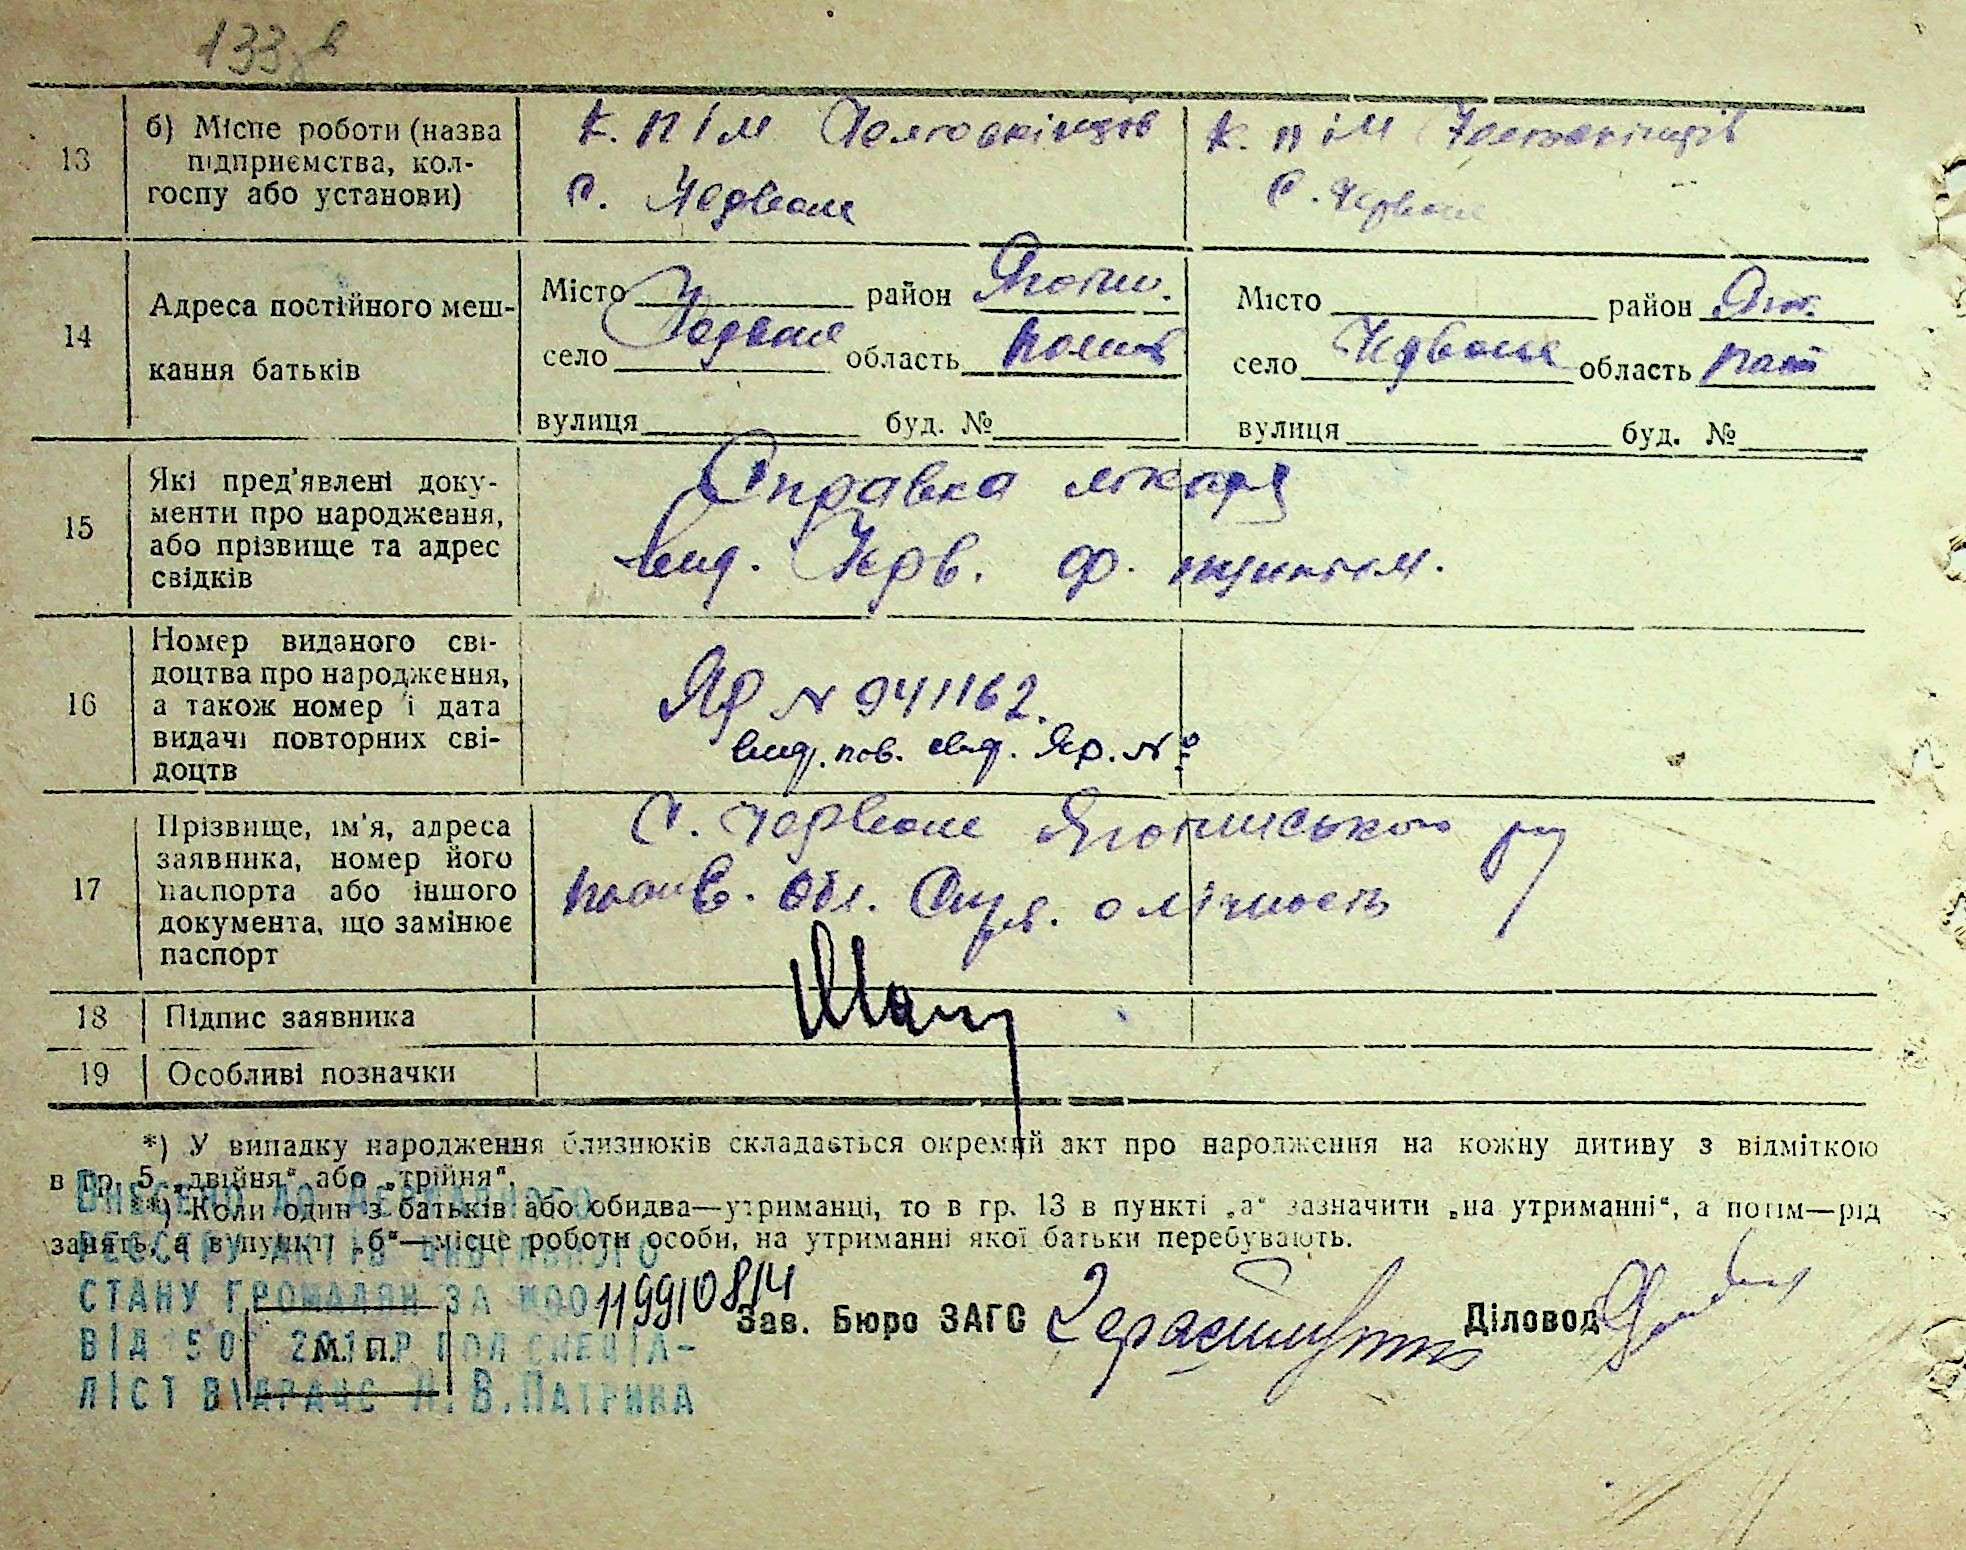 133
13
б) Місце роботи (назва
підприємства, кол-
госпу або установи)
к. п ім Челюскінців
с. Червоне
к. п ім Челюскінців
с. Червоне
14
Адреса постійного меш-
кання батьків
Місто район Яготин.
село Червоне область Полт
вулиця буд. №
Місто район Ягот.
село Червоне область Полт
вулиця буд. №
15
Які пред'явлені доку-
менти про народження,
або прізвище та адрес
свідків
Справка лікаря
вид. Черв. ф. пунктом.
16
Номер виданого сві-
доцтва про народження,
а також номер і дата
видачі повторних сві-
доцтв
ЯР № 941162.
вид. пов. свид. Яр. №
17
Прізвище, ім'я, адреса
заявника, номер його
паспорта або іншого
документа, що замінює
паспорт
С. Червоне Яготинського р-ну
Полт. обл. о лічность
18
Підпис заявника
19
Особливі позначки
*) У випадку народження близнюків складається окремий акт про народження на кожну дитину з відміткою
в гр. 5 „двійня“ або „трійня“.
**) Коли один з батьків або обидва—утриманці, то в гр. 13 в пункті „а“ зазначити „на утриманні“, а потім—рід
занять, а в пункті „б“—місце роботи особи, на утриманні якої батьки перебувають.
ВНЕСЕНО ДО ДЕРЖАВНОГО
РЕЄСТРУ АКТІВ ЦИВІЛЬНОГО
СТАНУ ГРОМАДЯН ЗА №00119910814
ВІД 201 Р ГОЛ СПЕЦІА-
ЛІСТ ВІДРАЦС Н.В.ПАТРИНА
М. П.
Зав. Бюро ЗАГС
Діловод